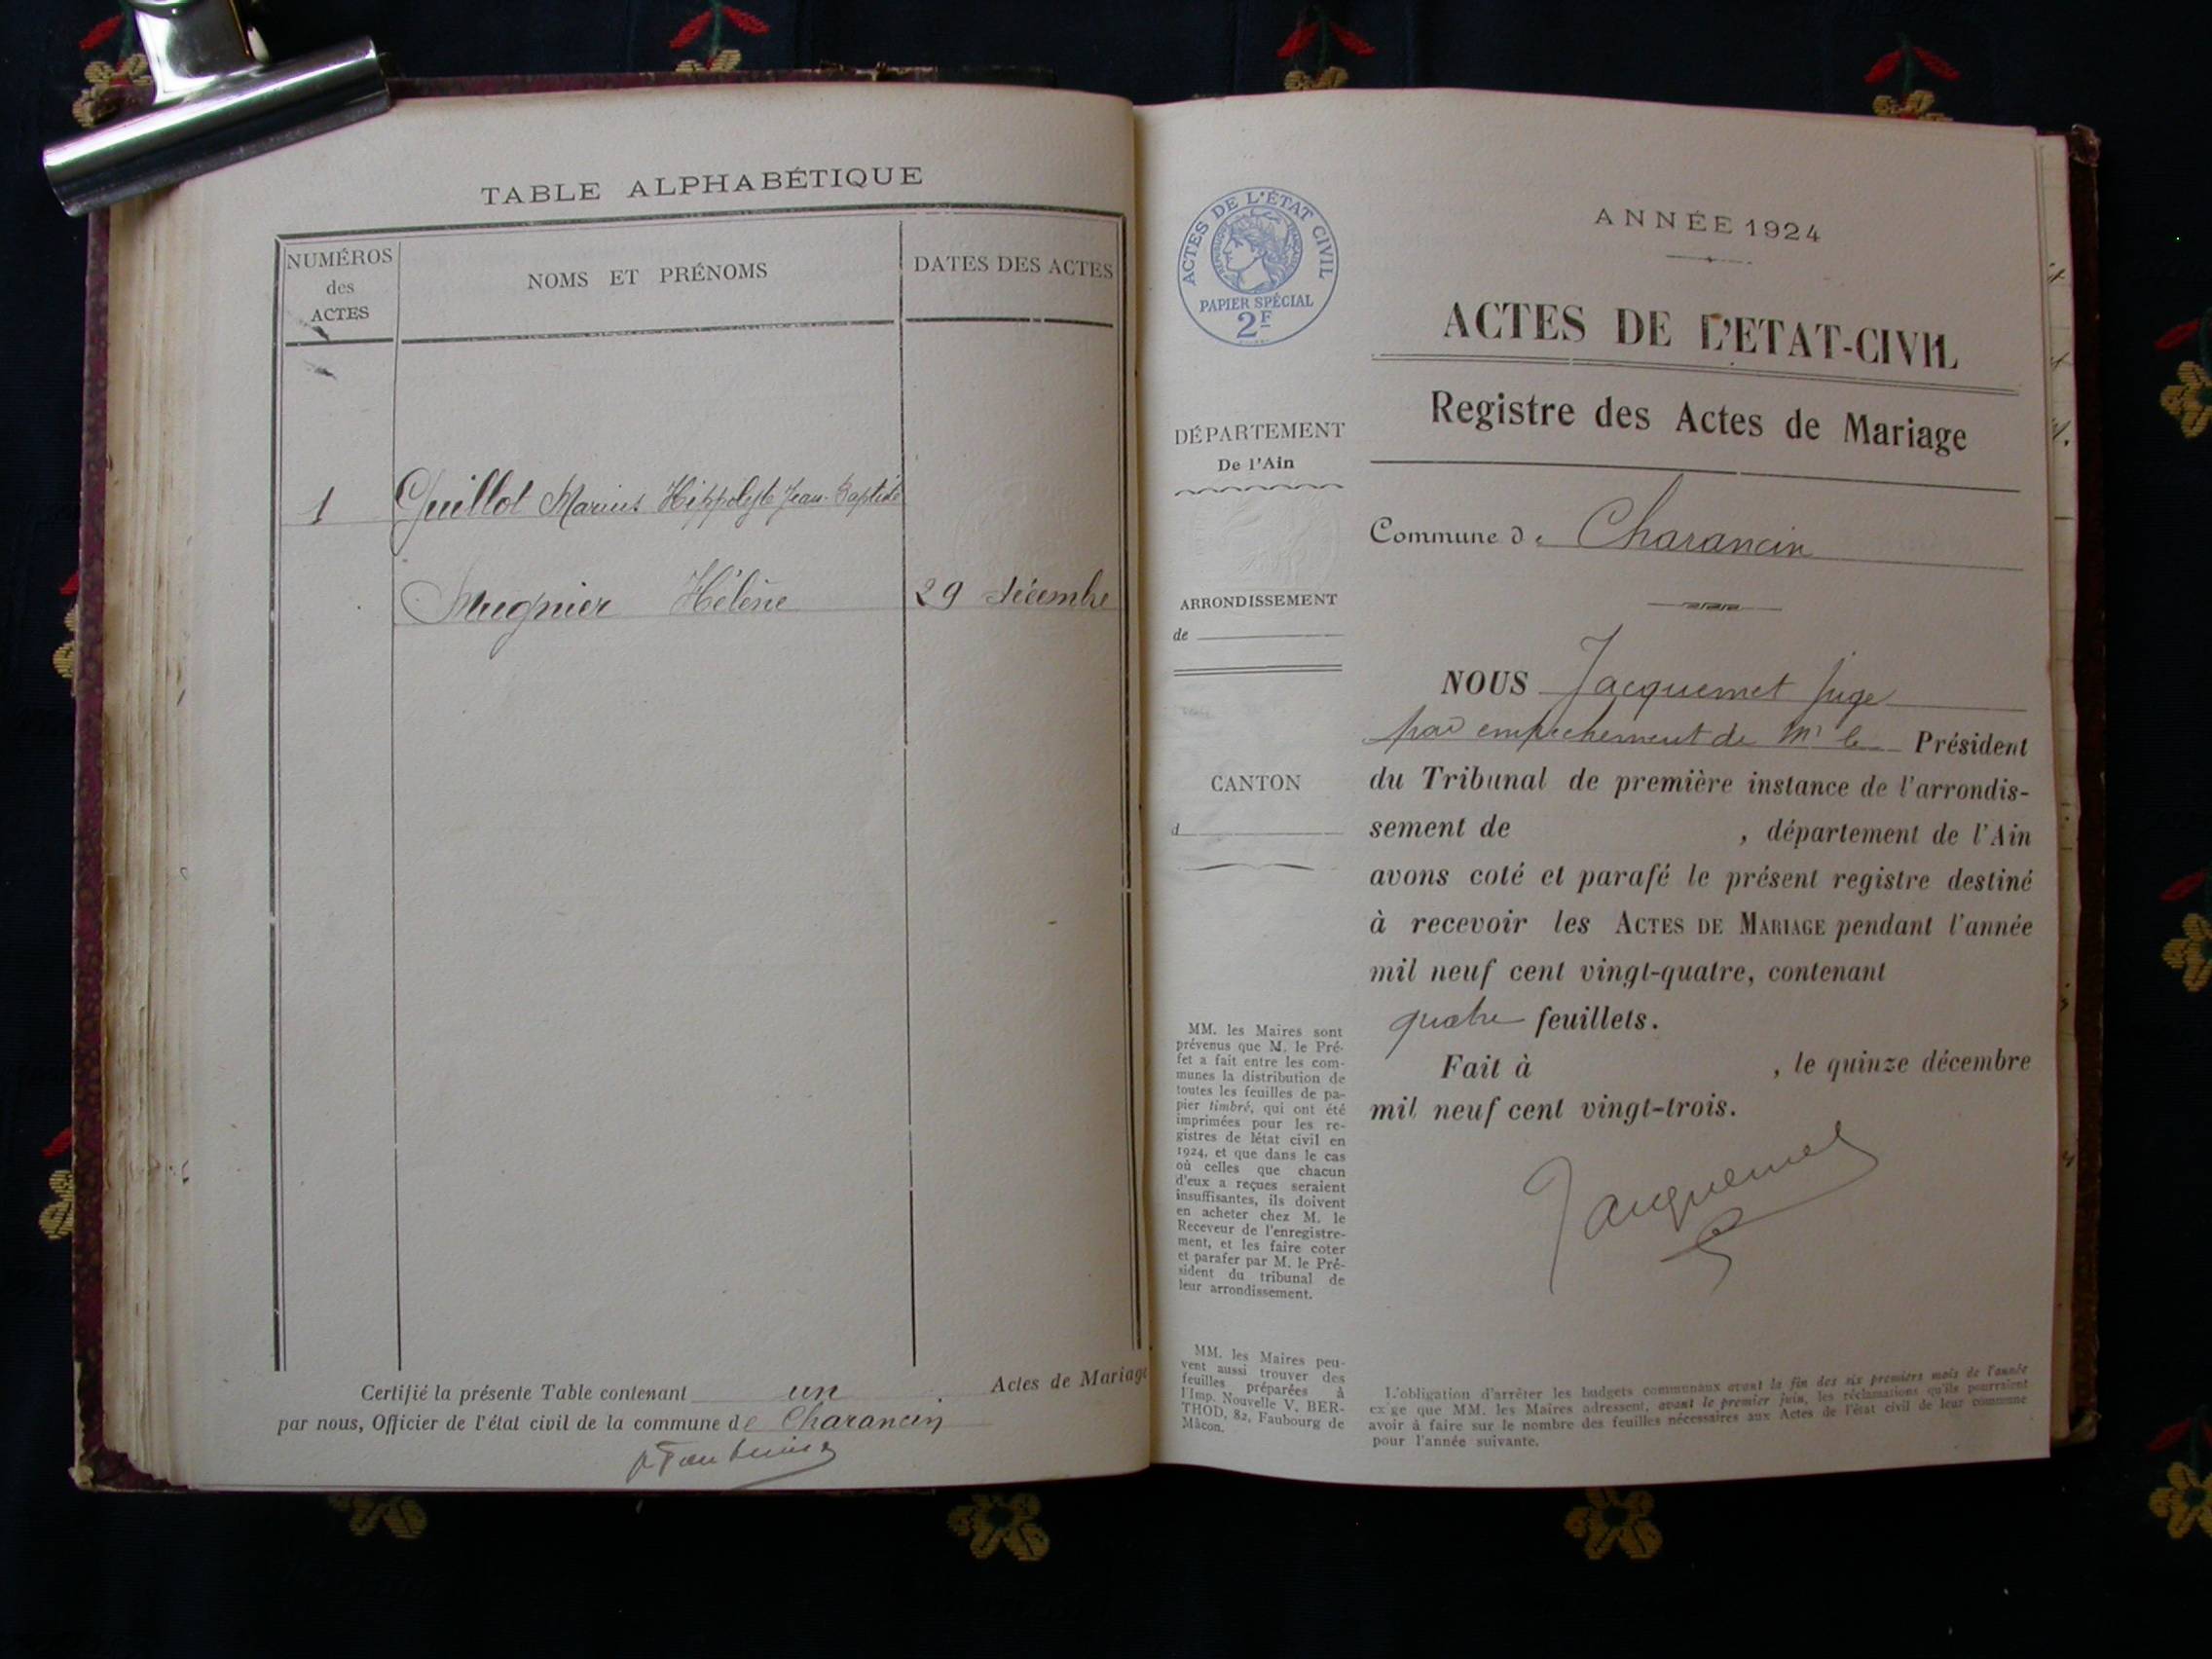 TABLE ALPHABÉTIQUE
NUMÉROS
des
ACTES
NOMS ET PRÉNOMS
DATES DES ACTES
1 Guillot Marius Hippolyte Jean-Baptiste
Mugnier Hélène 29 décembre
Certifié la présente Table contenant un Actes de Mariage
par nous, Officier de l'état civil de la commune de Charancin
ACTES DE L'ÉTAT CIVIL
RÉPUBLIQUE FRANÇAISE
PAPIER SPÉCIAL
2F
DÉPARTEMENT
De l'Ain
ARRONDISSEMENT
de
CANTON
d
MM. les Maires sont
prévenus que M. le Pré-
fet a fait entre les com-
munes la distribution de
toutes les feuilles de pa-
pier timbré, qui ont été
imprimées pour les re-
gistres de létat civil en
1924, et que dans le cas
où celles que chacun
d'eux a reçues seraient
insuffisantes, ils doivent
en acheter chez M. le
Receveur de l'enregistre-
ment, et les faire coter
et parafer par M. le Pré-
sident du tribunal de
leur arrondissement.
MM. les Maires peu-
vent aussi trouver des
feuilles préparées à
l'Imp. Nouvelle V. BER-
THOD, 82, Faubourg de
Mâcon.
ANNÉE 1924
ACTES DE L'ETAT-CIVIL
Registre des Actes de Mariage
Commune de Charancin
NOUS Jacquemet juge
par empêchement de Mr le Président
du Tribunal de première instance de l'arrondis-
sement de , département de l'Ain
avons coté et parafé le présent registre destiné
à recevoir les ACTES DE MARIAGE pendant l'année
mil neuf cent vingt-quatre, contenant
quatre feuillets.
Fait à , le quinze décembre
mil neuf cent vingt-trois.
Jacquemet
L'obligation d'arrêter les budgets communaux avant la fin des six premiers mois de l'année
exige que MM. les Maires adressent, avant le premier juin, les réclamations qu'ils pourraient
avoir à faire sur le nombre des feuilles nécessaires aux Actes de l'état civil de leur commune
pour l'année suivante.